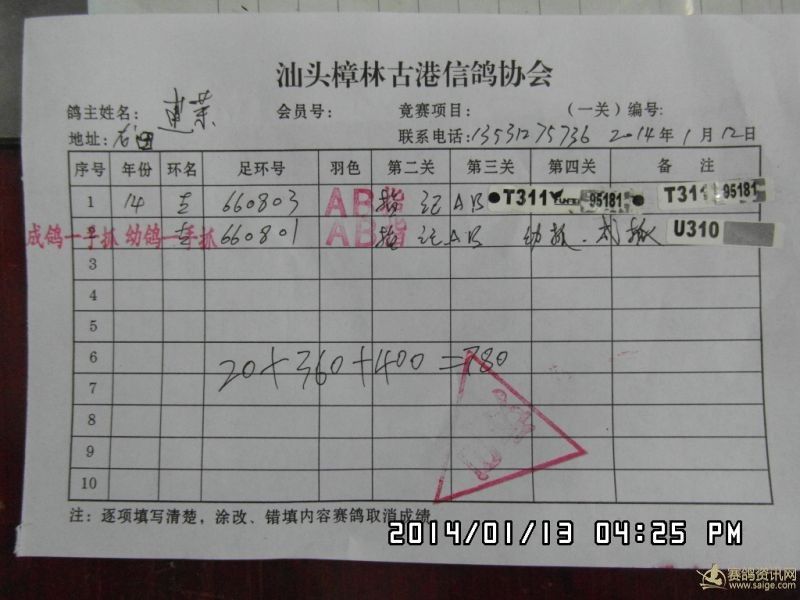 汕头樟林古港信鸽协会
鸽主姓名: 会员号: 竟赛项目: (一关)编号:
地址: 联系电话:13531275736 2014年1月12日
序号 年份 环名 足环号 羽色 第二关 第三关 第四关 备 注
1 14 660803 AB指 记AB T311 95181 T311 95181
成鸽一手抓 幼鸽一手抓 660801 AB指 记AB U310
3
4
5
6
20+360+400=780
7
8
9
10
注:逐项填写清楚,涂改、错填内容赛鸽取消成绩
2014/01/13 04:25 PM
赛鸽资讯网
www.saige.com